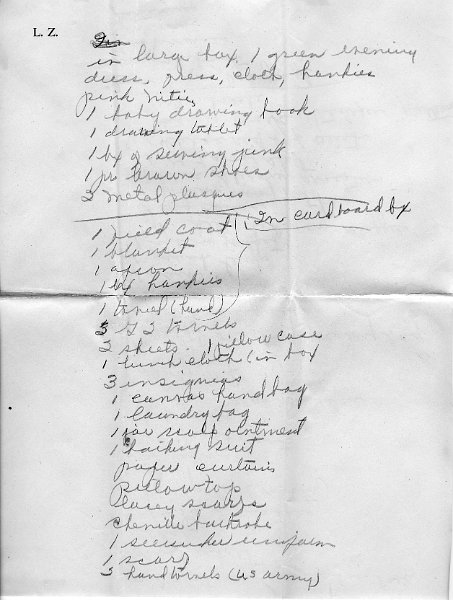 L. Z.
in large box, 1 green evening
dress, press, cloth, hankies
pink nitie
1 baby drawing book
1 drawing tablet
1 bx of sewing junk
1 pr brown shoes
2 metal plaques
1 field coat In cardboard bx
1 blanket
1 apron
1 bx hankies
1 towel (hand)
3 G I towels
2 sheets 1 pillow case
1 lunch cloth (in box
3 insignias
1 canvas handbag
1 laundry bag
1 jar scalp ointment
1 bathing suit
paper curtains
Pillowtop
lacey scarfs
chenille bathrobe
1 seersucker uniform
1 scarf
3 hand towels (US army)